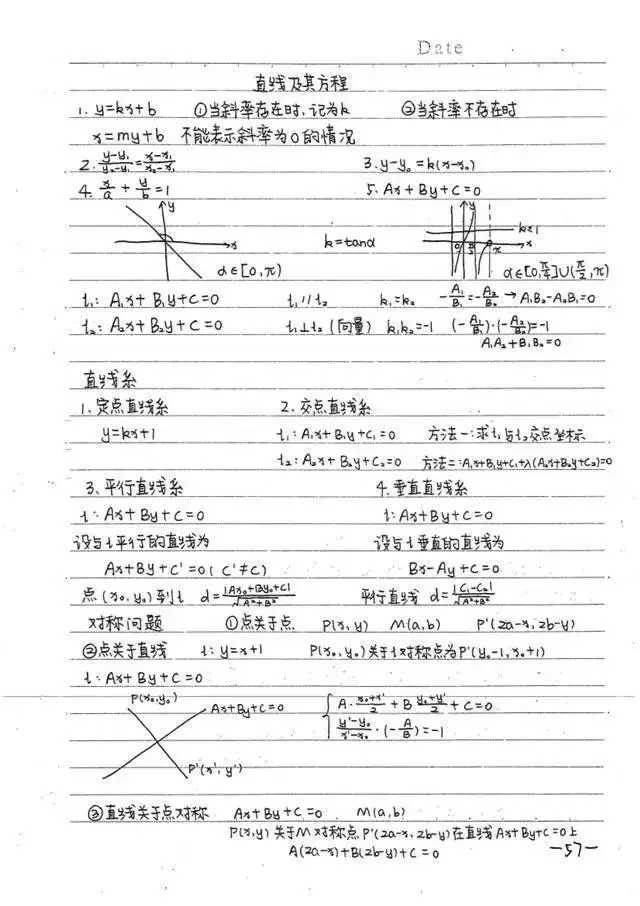 Date
直线及其方程
1. y=kx+b ①当斜率存在时,记为k ②当斜率不存在时
x=my+b 不能表示斜率为0的情况
2. (y-y₁)/(y₀-y₁)=(x-x₁)/(x₀-x₁) 3. y-y₀=k(x-x₀)
4. x/a + y/b =1 5. Ax+By+C=0
y y
x k=tanα k=1
0 π x
α∈[0,π) α∈[0,π/4]∪(π/2,π)
l₁: A₁x+B₁y+C=0 l₁∥l₂ k₁=k₂ -A₁/B₁=-A₂/B₂ → A₁B₂-A₂B₁=0
l₂: A₂x+B₂y+C=0 l₁⊥l₂(向量) k₁k₂=-1 (-A₁/B₁)·(-A₂/B₂)=-1
A₁A₂+B₁B₂=0
直线系
1、定点直线系 2、交点直线系
y=kx+1 l₁: A₁x+B₁y+C₁=0 方法一:求l₁与l₂交点坐标
l₂: A₂x+B₂y+C₂=0 方法二:A₁x+B₁y+C₁+λ(A₂x+B₂y+C₂)=0
3、平行直线系 4、垂直直线系
l: Ax+By+C=0 l: Ax+By+C=0
设与l平行的直线为 设与l垂直的直线为
Ax+By+C'=0(C'≠C) Bx-Ay+C=0
点(x₀,y₀)到l d=|Ax₀+By₀+C|/√(A²+B²) 平行直线 d=|C₁-C₂|/√(A²+B²)
对称问题 ①点关于点 P(x,y) M(a,b) P'(2a-x,2b-y)
②点关于直线 l: y=x+1 P(x₀,y₀)关于l对称点为P'(y₀-1,x₀+1)
l: Ax+By+C=0
P(x₀,y₀) Ax+By+C=0 { A·(x₀+x')/2 + B·(y₀+y')/2 + C=0
(y'-y₀)/(x'-x₀)·(-A/B)=-1
P'(x',y')
③直线关于点对称 Ax+By+C=0 M(a,b)
P(x,y)关于M对称点P'(2a-x,2b-y)在直线Ax+By+C=0上
A(2a-x)+B(2b-y)+C=0
-57-